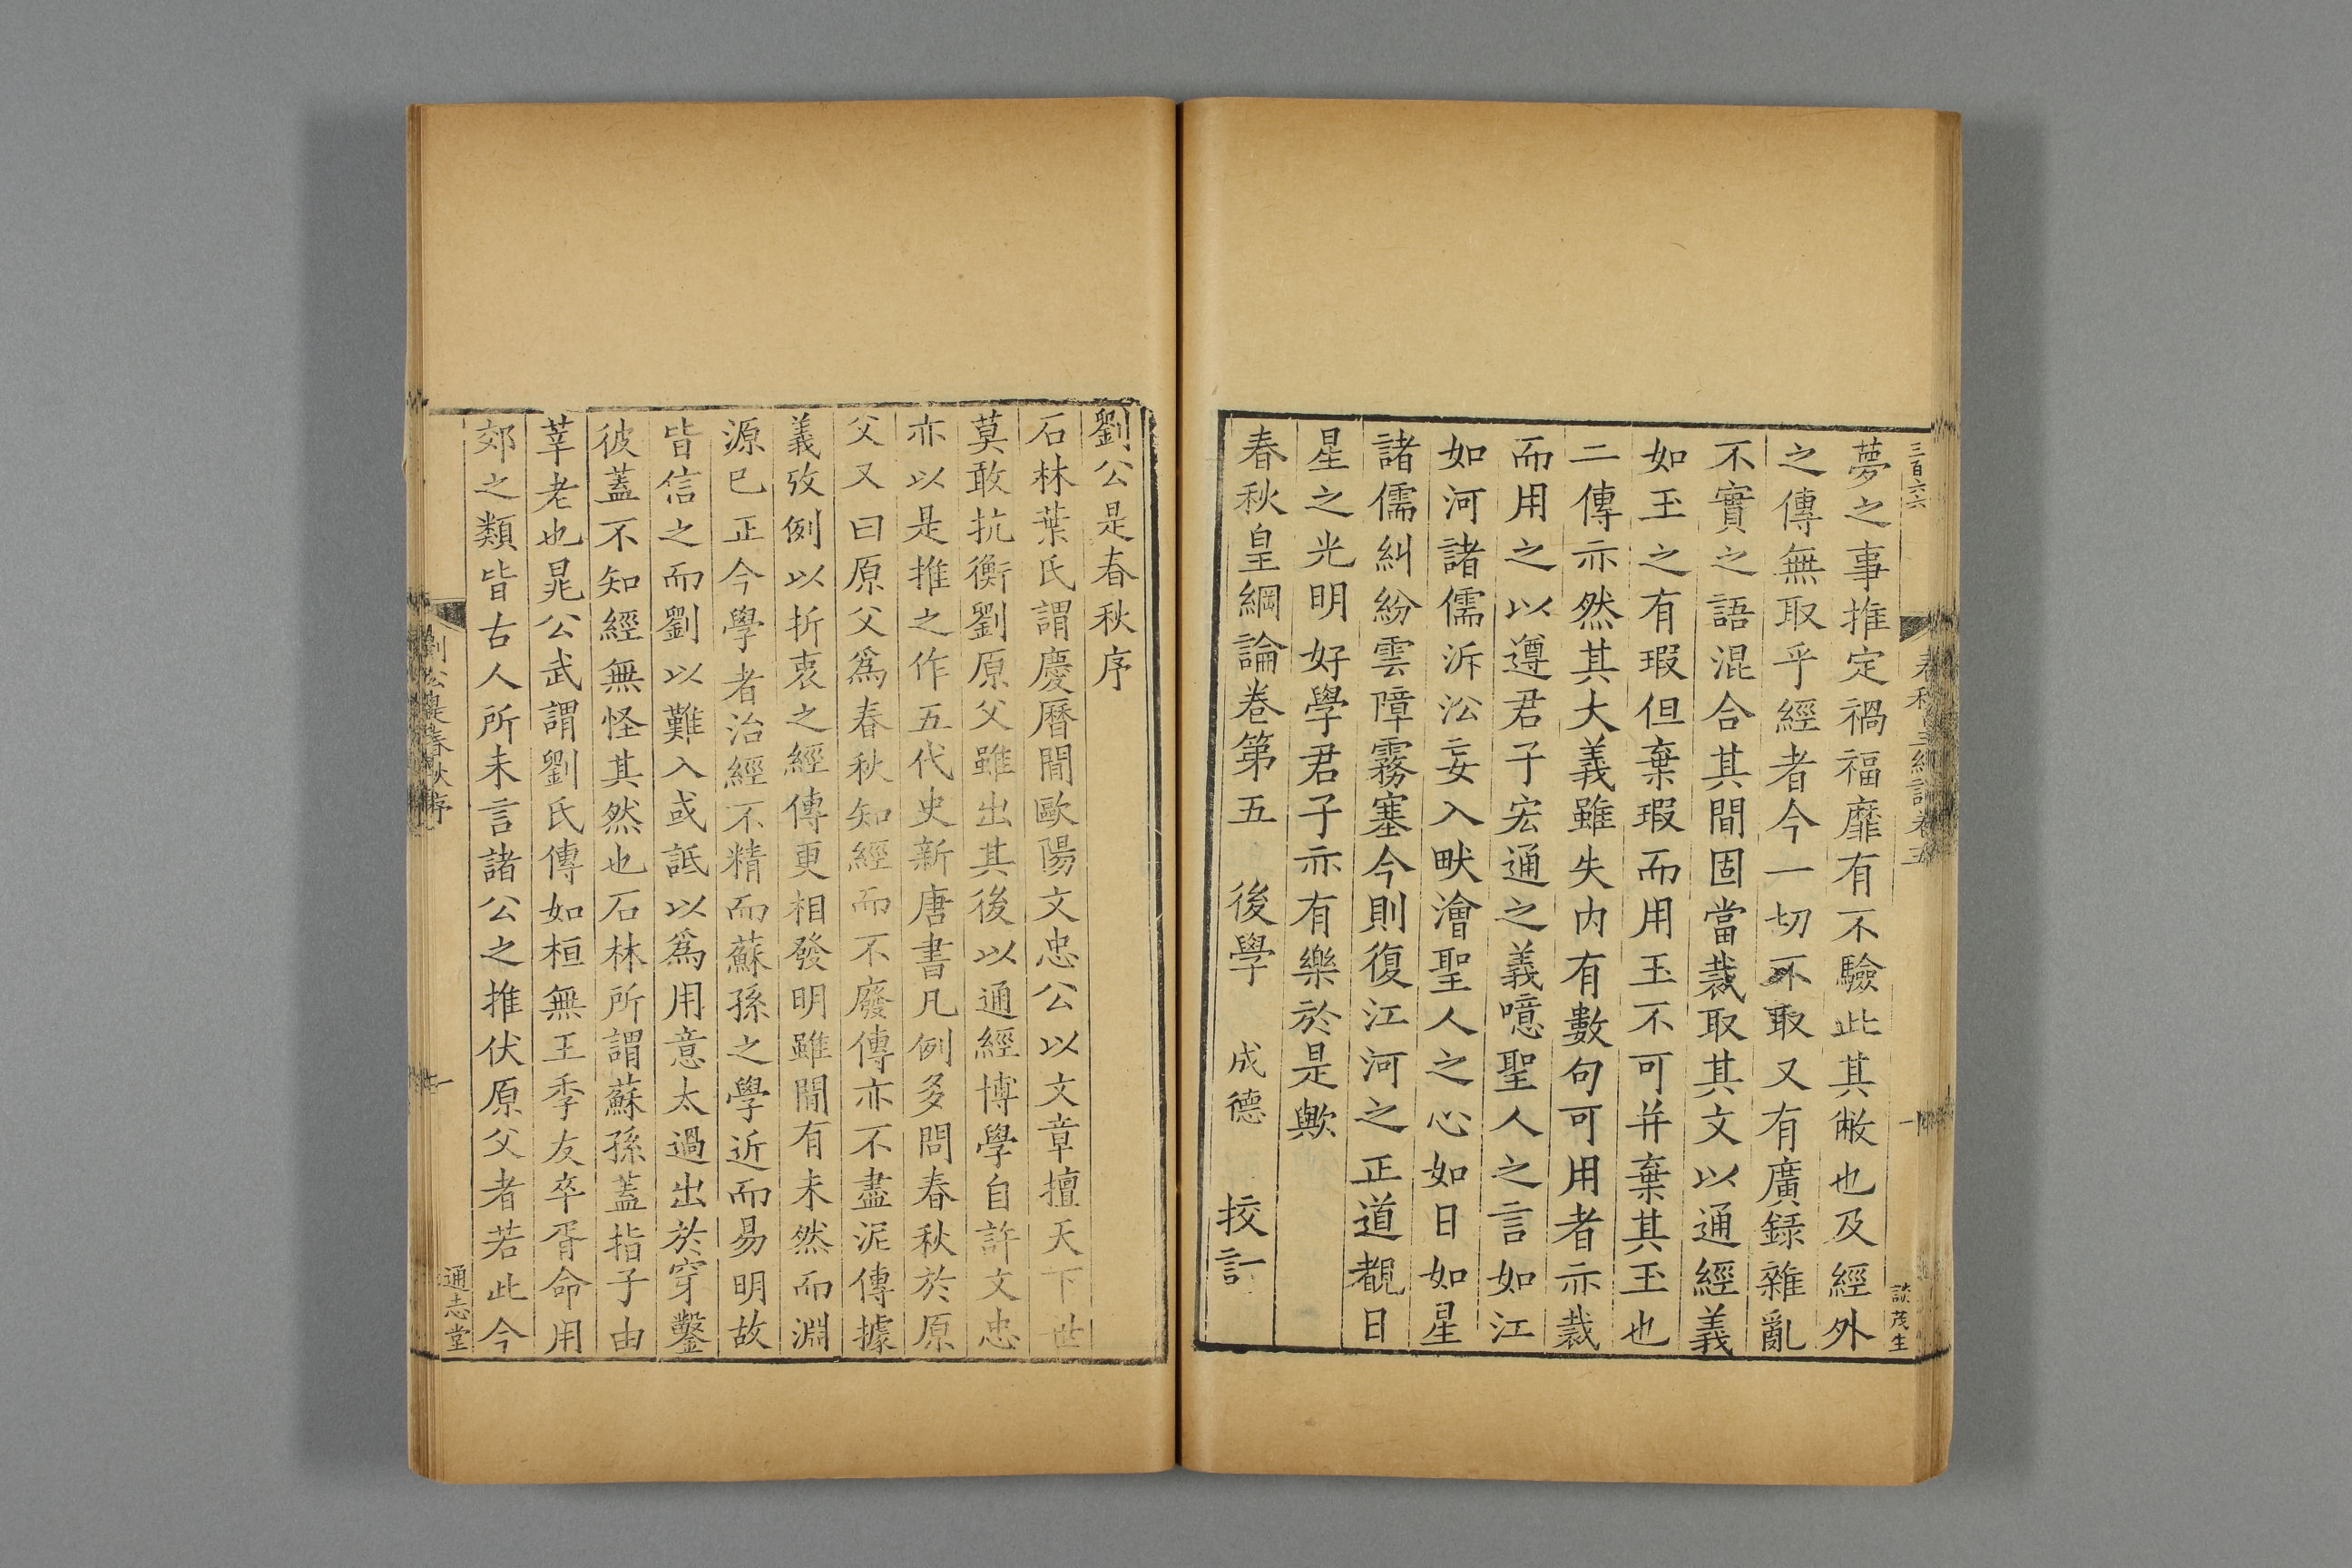 三百六六
談茂生
夢之事推定禍福靡有不驗此其敝也及經外
之傳無取乎經者今一切不取又有廣錄雜亂
不實之語混合其間固當裁取其文以通經義
如玉之有瑕但棄瑕而用玉不可并棄其玉也
二傳亦然其大義雖失內有數句可用者亦裁
而用之以遵君子宏通之義噫聖人之言如江
如河諸儒泝㳂妄入畎澮聖人之心如日如星
諸儒糾紛雲障霧塞今則復江河之正道覩日
星之光明好學君子亦有樂於是歟
春秋皇綱論卷第五 後學 成德 挍訂
劉公是春秋序
石林葉氏謂慶曆間歐陽文忠公以文章擅天下世
莫敢抗衡劉原父雖出其後以通經博學自許文忠
亦以是推之作五代史新唐書凡例多問春秋於原
父又曰原父爲春秋知經而不廢傳亦不盡泥傳據
義攷例以折衷之經傳更相發明雖間有未然而淵
源已正今學者治經不精而蘇孫之學近而易明故
皆信之而劉以難入或詆以爲用意太過出於穿鑿
彼蓋不知經無怪其然也石林所謂蘇孫蓋指子由
莘老也晁公武謂劉氏傳如桓無王季友卒胥命用
郊之類皆古人所未言諸公之推伏原父者若此今
劉公是春秋序
一
通志堂